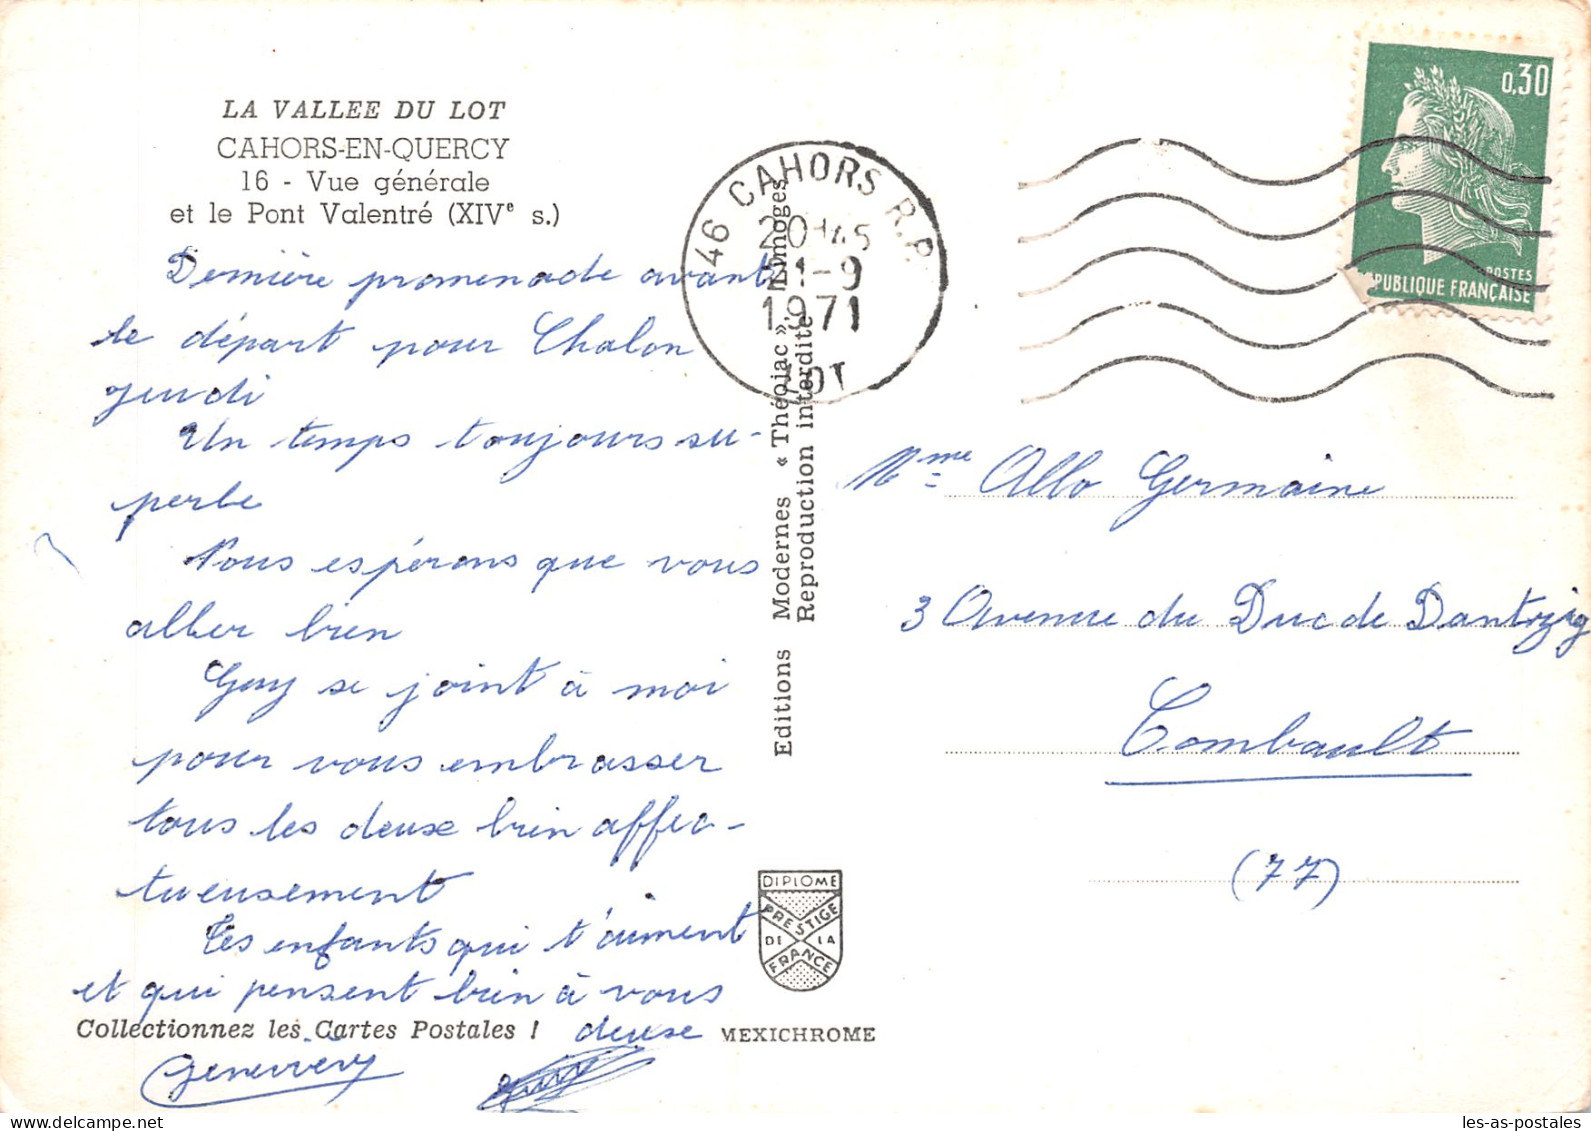 LA VALLEE DU LOT
CAHORS-EN-QUERCY
16 - Vue générale
et le Pont Valentré (XIVe s.)
Dernière promenade avant
le départ pour Chalon
jeudi
Un temps toujours su-
perbe
Nous espérons que vous
aller bien
Guy se joint à moi
pour vous embrasser
tous les deux bien affec-
tueusement
Tes enfants qui t'aiment
et qui pensent bien à vous
deux
Collectionnez les Cartes Postales !
MEXICHROME
Editions Modernes « Théojac », Limoges
Reproduction interdite
46 CAHORS R.P.
20H45
21-9
1971
LOT
0,30
POSTES
REPUBLIQUE FRANÇAISE
Mme Allo Germaine
3 Avenue du Duc de Dantzig
Combault
(77)
DIPLOME
PRESTIGE
DE LA
FRANCE
les-as-postales.com